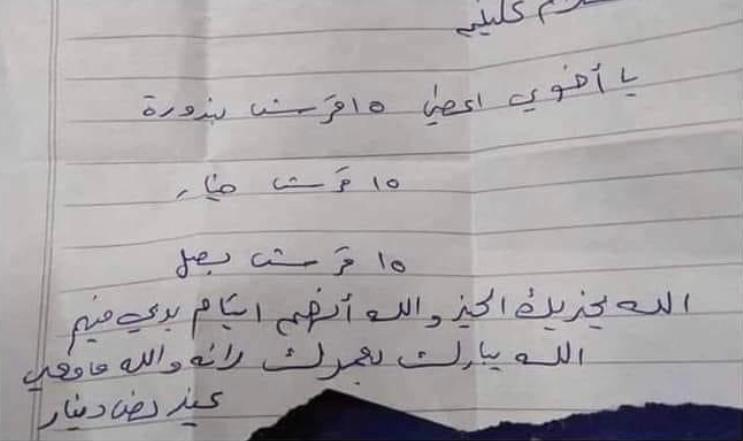 عليكم
يا أخوي اعطيني ١٥ قرش بندورة
١٥ قرش خيار
١٥ قرش بصل
الله يجزيك الخير والله أنهم ايتام بدي
الله يبارك بعمرك وانه والله ما معي
غير نص دينار